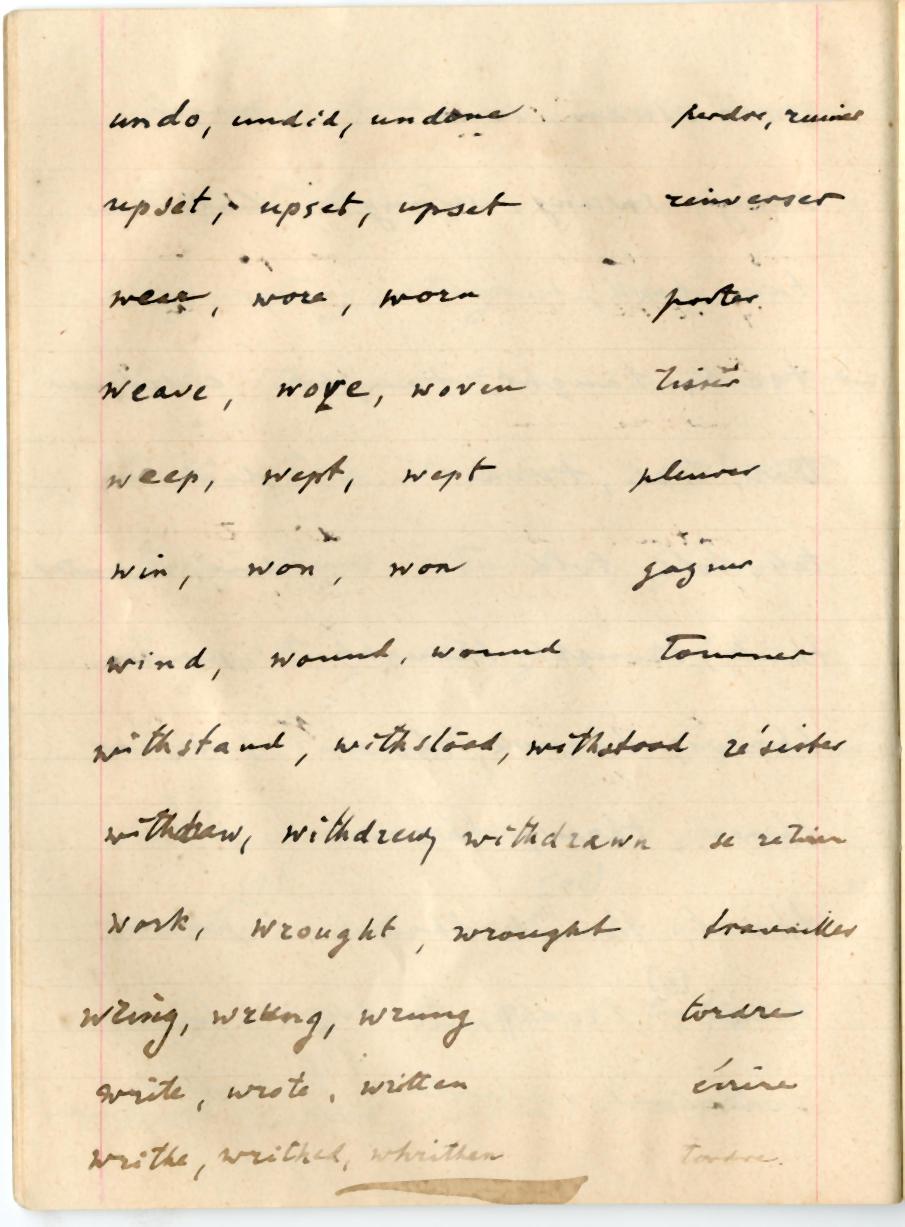 undo, undid, undone perdre, ruiner
upset, upset, upset reinverser
wear, wore, worn porter
weave, wove, woven tisser
weep, wept, wept pleurer
win, won, won gagner
wind, wound, wound tourner
withstand, withstood, withstood résister
withdraw, withdrew, withdrawn se retirer
work, wrought, wrought travailler
wring, wrung, wrung tordre
write, wrote, written écrire
writhe, writhed, whrithen tordre.